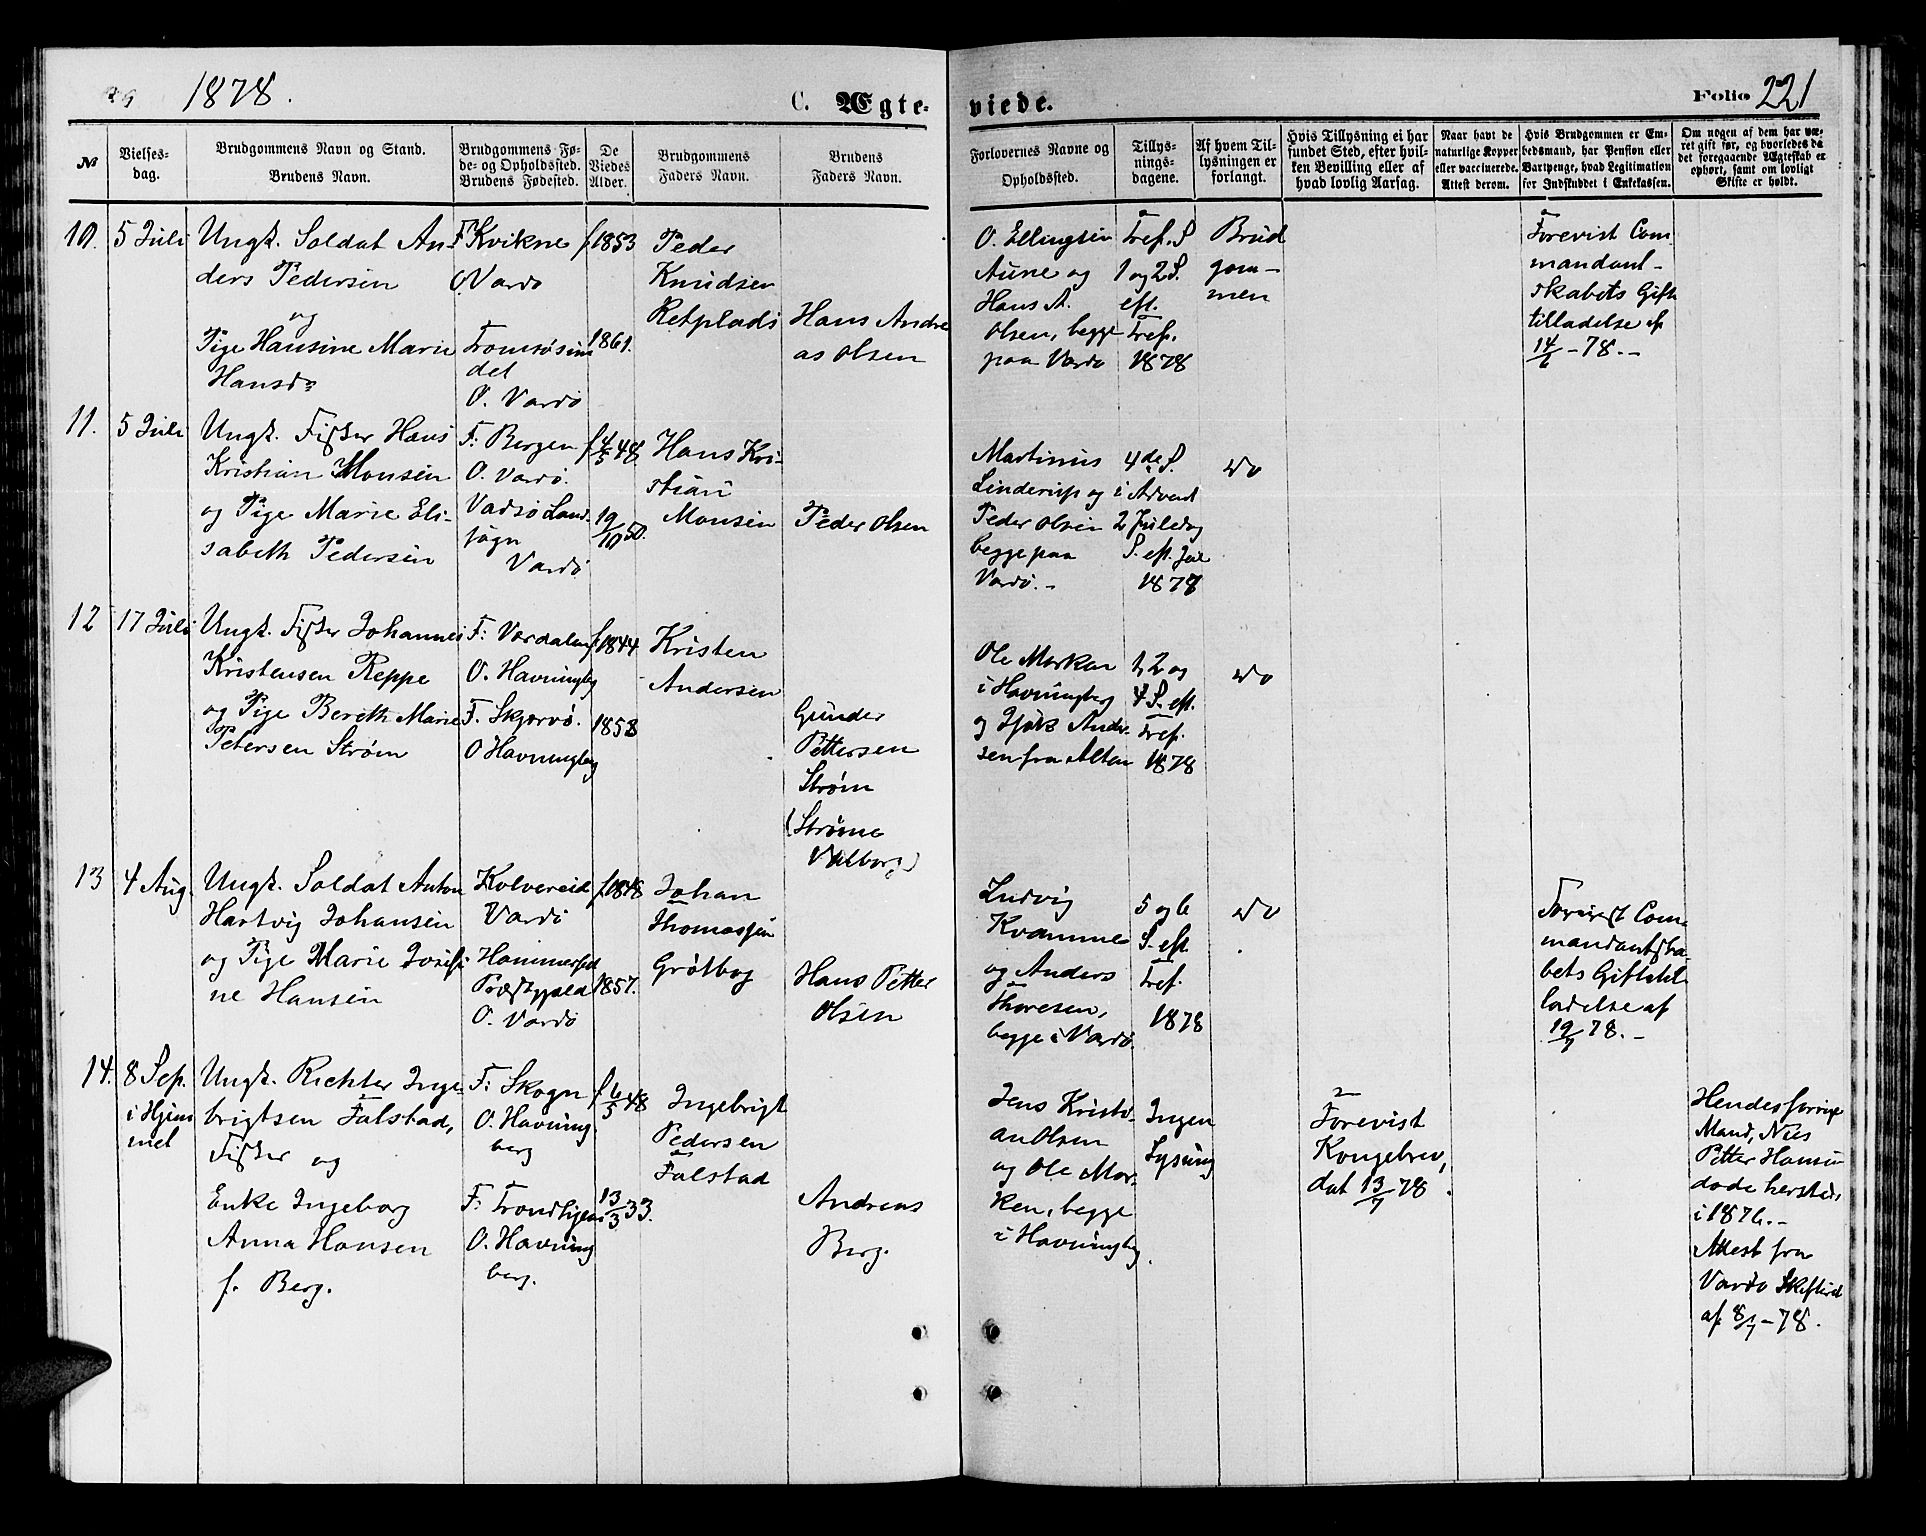 1878.
C. Ægte-
viede.
Folio 221
№
Vielses-
dag.
Brudgommens Navn og Stand.
Brudens Navn.
Brudgommens Fø-
de- og Opholdssted.
Brudens Fødested.
De
Viedes
Alder.
Brudgommens
Faders Navn.
Brudens
Faders Navn.
Forlovernes Navne og
Opholdssted.
Tillys-
nings-
dagene.
Af hvem Til-
lysningen er
forlangt.
Hvis Tillysning ei har
fundet Sted, efter hvil-
ken Bevilling eller af
hvad lovlig Aarsag.
Naar havt de
naturlige Kopper
eller vaccinerede.
Attest derom.
Hvis Brudgommen er Em-
bedsmand, har Pension eller
Vartpenge, hvad Legitimation
for Indskuddet i Enkekassen.
Om nogen af dem har væ-
ret gift før, og hvorledes da
det foregaaende Ægteskab er
ophørt, samt om lovligt
Skifte er holdt.
10.
5 Juli
Ungk. Soldat An-
ders Pedersen
og
Pige Hansine Marie
Hansd.
F. Kvikne
O. Vardø
Tromsøsun
det
O. Vardø
f. 1853
1861.
Peder
Knudsen
Retplads
Hans Andre
as Olsen
O. Ellingsen
Aune og
Hans A.
Olsen, begge
paa Vardø
Tref. S
1 og 2 S.
eft.
Tref.
1878
Brud
gom-
men
Forevist Com
mandant-
skabets Gifte
tilladelse af
14/6 - 78. -
11.
5 Juli
Ungk. Fisker Hans
Kristian Monsen
og Pige Marie Eli-
sabeth Pedersen
F: Bergen
O. Vardø.
Vadsø Land
sogn
Vardø
f 4/5 48.
19/10 50.
Hans Kri-
stian
Monsen
Peder Olsen
Martinus
Linderup og
Peder Olsen
begge paa
Vardø. -
4de S.
i Advent
2 Juledag
S. eft. Jul
1877
do
12
17 Juli
Ungk. Fisker Johannes
Kristensen Reppe
og Pige Bereth Marie
Petersen Strøm
F: Værdalen
O. Havningbg
F. Skjervø.
O Havningbg
f. 1844
1858
Kristen
Andersen
Gunder
Pettersen
Strøm
(Strøm
Valborg)
Ole Morken
i Havningbg
og Isak Ander-
sen fra Alten
1, 2 og
4 S. eft.
Tref.
1878
do
13
4 Aug.
Ungk. Soldat Anton
Hartvig Johansen
og Pige Marie Josefi
ne Hansen
Kolvereid
Vardø
Hammerfest
Præstegjeld
O. Vardø
f. 1848
1857.
Johan
Thomassen
Grøtbog
Hans Petter
Olsen
Ludvig
Kvamme
og Anders
Thoresen,
begge i Vardø.
5 og 6
S. eft.
Tref.
1878
do
Forevist Com-
mandantska-
bets Giftetil
ladelse af
19/7 78. -
14.
8 Sep.
i Hjem
met
Ungk. Richter Inge-
brigtsen Falstad,
Fisker og
Enke Ingeborg
Anna Hansen
f. Berg.
F: Skogn
O. Havning
berg
F: Trondhjem
O. Havning
berg.
f 6/5 48
13/3 33.
Ingebrigt
Pedersen
Falstad
Andreas
Berg.
Jens Kristi-
an Olsen
og Ole Mor-
ken, begge
i Havningbg.
Ingen
Lysning
Forevist
Kongebrev,
dat 13/7 78.
Hendes forrige
Mand, Nils
Petter Hansen
døde hersteds
i 1876. -
Attest fra
Vardø Skifteret
af 8/7 - 78.